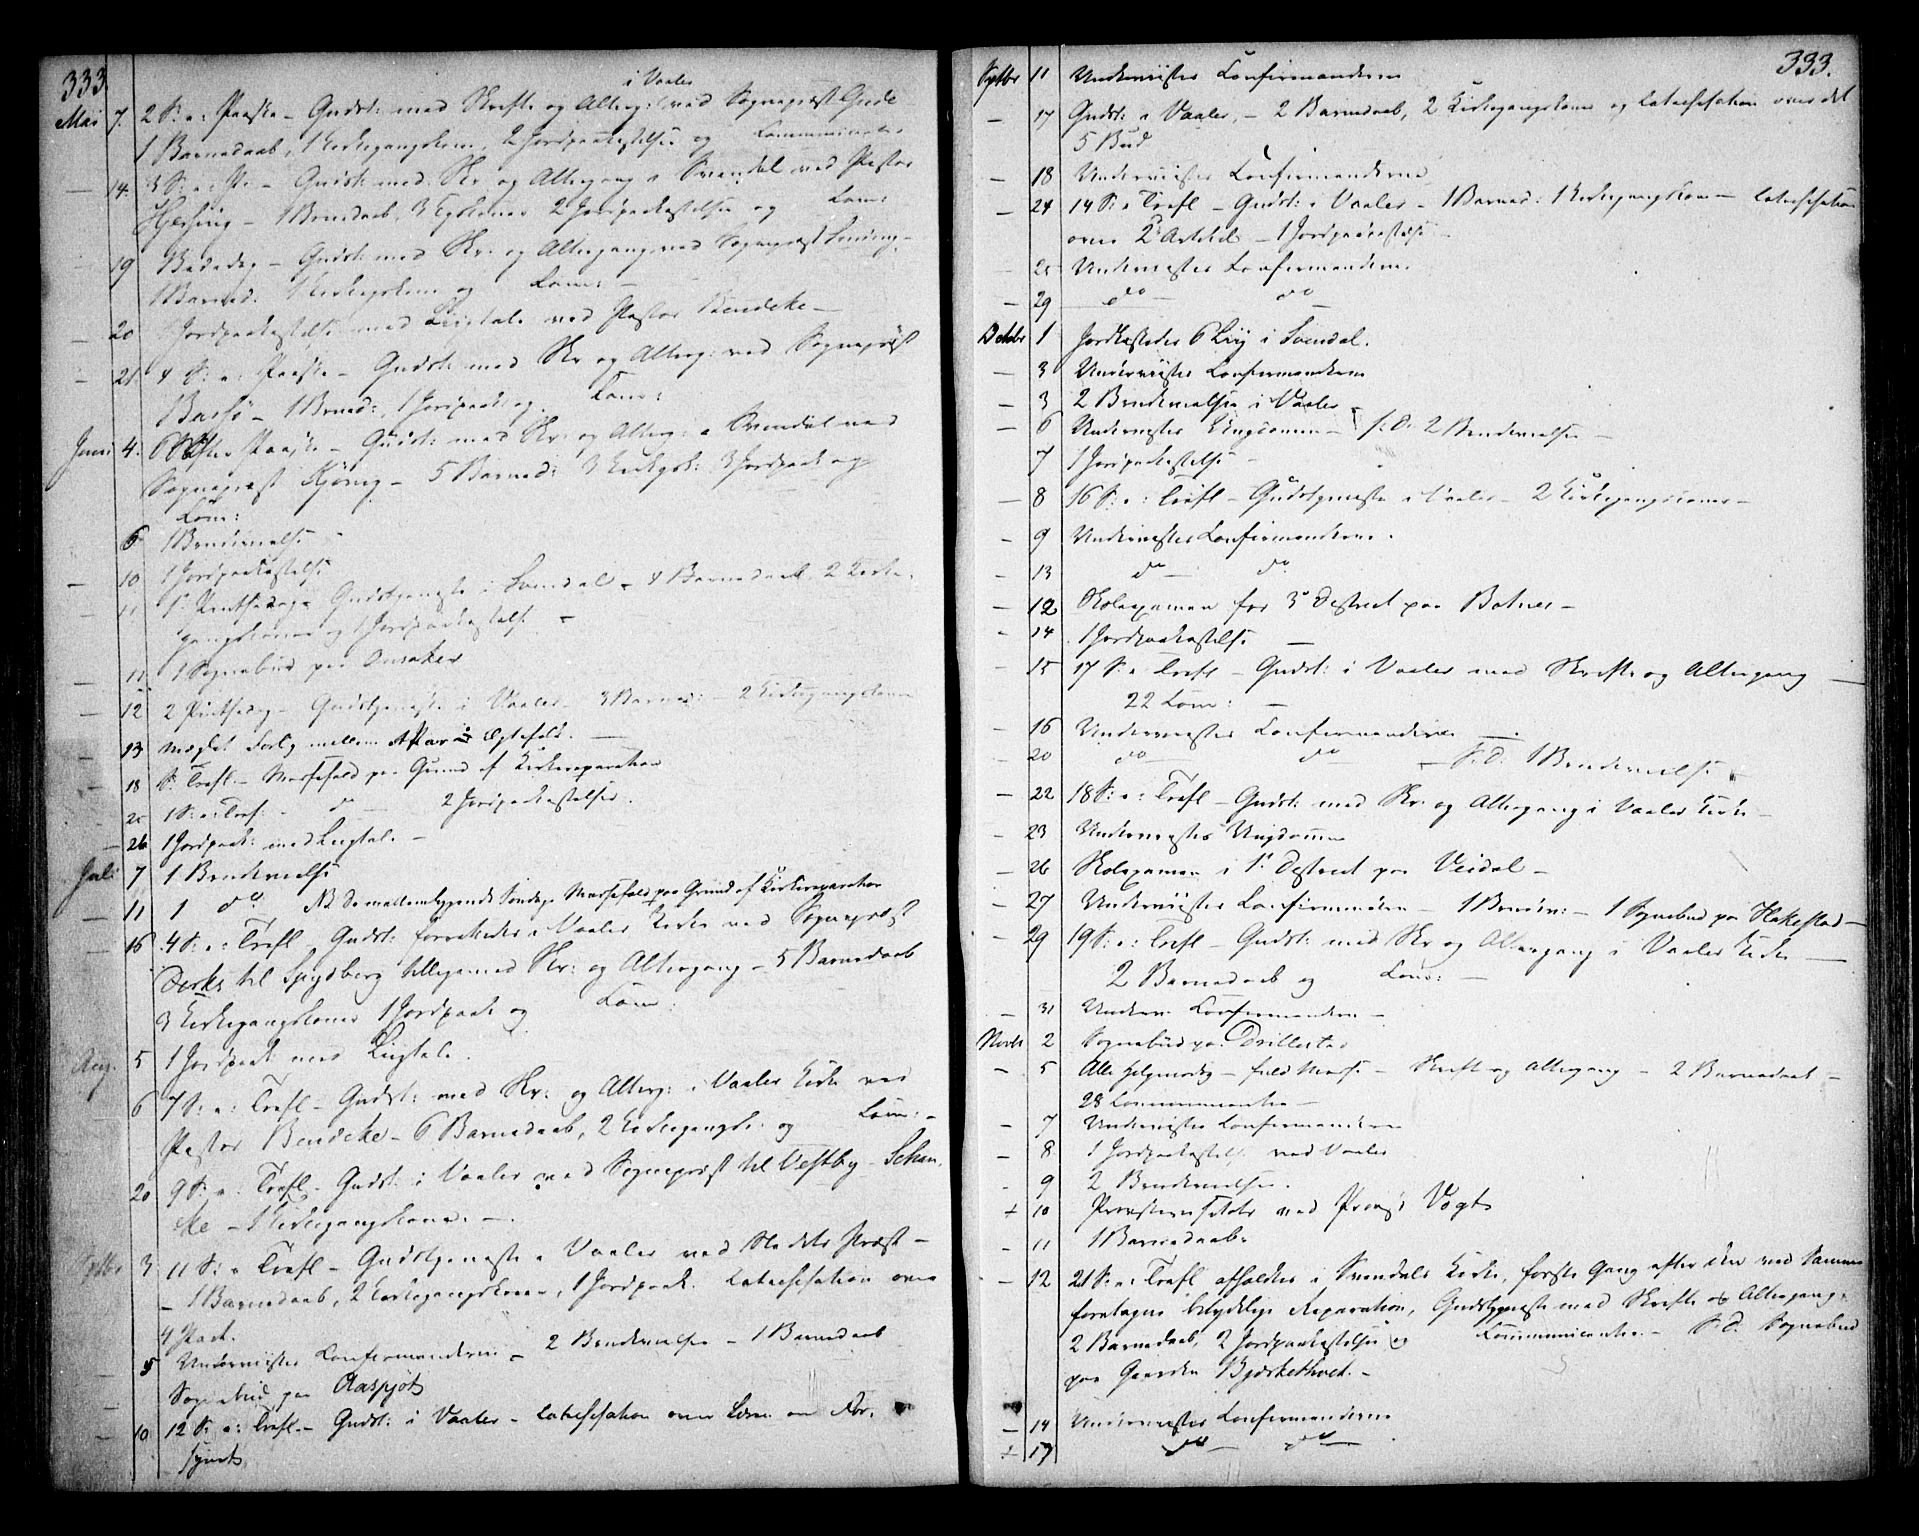 333.
i Vaaler
Mai 7. 2 S: e: Paaske – Gudst: med Skrifte og Alterg: ved Sognepræst Gude
1 Barnedaab, 1 Kirkegangskone, 2 Jordpaakastelse og Communicanter
— 14. 3 S: e: P: – Gudst: med Skr: og Altergang i Svendal ved Pastor
1 Barnedaab, 3 2 Jordpaakastelse og Com:
19 Bededag – Gudst: med Skr: og Altergang ved Sognepræst
1 Barned: 1 og Com: –
— 20 1 Jordpaakastelse med Liigtale ved Pastor Bendeke –
— 21 4 S: e: Paaske – Gudst: med Skr: og Alterg: ved Sognepræst
1 Barned:, 1 Jordpaak: og Com:
Juni 4. 6 S: efter Paaske – Gudst: med Skr: og Alterg: i Svendal ved
Sognepræst – 5 Barned: 3 Kirkgsk: 3 Jordpaak: og
Com:
6 1 Brudevielse
— 10 1 Jordpaakastelse
11 1ste Pintsedag – Gudstjeneste i Svendal – 4 Barnedaab, 2 Kirke-
gangskoner og 1 Jordpaakastelse –
11 1 Sognebud paa Huseker
— 12 2 Pintsedag – Gudstjeneste i Vaaler – 3 Barned: – 2 Kirkegangskoner
— 13 Mæglet Forlig mellem 1 Par Ægtefolk. —
— 18 S: Trefl. – Messefald paa Grund af Kirkereparation
25 1 S: e: Tref: – do – 2 Jordpaakastelser.
— 26 1 Jordpaak: med Liigtale. –
Juli 7 1 Brudevielse
— 11 1 do NB. De mellemliggende Søndage Messefald paa Grund af Kirkereparation
— 16 4 S: e: Trefl. Gudst: forrettedes i Vaaler Kirke ved Sognepræst
Dirks til Spydberg tilligemed Skr: og Altergang – 5 Barnedaab
3 Kirkegangskoner 1 Jordpaak: og Com:
Aug. 5 1 Jordpaak: med Liigtale.
6 7 S: e: Trefl – Gudst: med Skr: og Alterg: i Vaaler Kirke ved
Pastor Bendeke – 6 Barnedaab, 2 Kirkegangsk: og Com: –
20 9 S: e: Trefl – Gudst: i Vaaler ved Sognepræst til Vestby – Schan-
che – 1 Kirkegangskone. –
Septbr 3 11 S: e: Trefl – Gudstjeneste i Vaaler ved Stedets Præst –
– 1 Barnedaab, 2 Kirkegangskoner, 1 Jordpaak: Catechisation over
4 Part.
5 Underviistes Confirmanderne – 2 Brudevielser – 1 Barnedaab
Sognebud paa Aaspjøt
10 12 S: e: Trefl – Gudst: i Vaaler – Catechisation over Læren om For-
synet
333.
Septbr 11 Underviistes Confirmanderne
— 17 Gudst: i Vaaler, – 2 Barnedaab, 2 Kirkegangskoner og Catechisation over det
5 Bud
— 18 Underviistes Confirmanderne
— 24 14 S: e Trefl – Gudst: i Vaaler – 1 Barned: 1 Kirkegangskone – Catechisation
over 2den Artikel – 1 Jordpaakastelse –
— 25 Underviistes Confirmanderne.
— 29 do — do —
Octobr 1 Jordfæstedes 6 Liig i Svendal.
— 3 Underviistes Confirmanderne
— 3 2 Brudevielser i Vaaler –
— 6 Underviistes Ungdommen – s: D: 2 Brudevielser –
7 1 Jordpaakastelse –
— 8 16 S: e: Trefl – Gudstjeneste i Vaaler – 2 Kirkegangskoner –
— 9 Underviistes Confirmanderne.
— 13 do — do.
— 12 Skoleexamen for 3die District paa Botner –
— 14 1 Jordpaakastelse —
— 15 17 S: e Trefl – Gudst: i Vaaler med Skrifte og Altergang —
22 Com: –
— 16 Underviistes Confirmanderne —.
— 20 do — do — S: D: 1 Brudevielse –
— 22 18 S: e: Trefl – Gudst: med Skr: og Altergang i Vaaler Kirke –
— 23 Underviistes Ungdommen
— 26 Skoleexamen i 1ste District paa Veidal –
— 27 Underviistes Confirmanderne – 1 Brudev: – 1 Sognebud paa Hakestad –
— 29 19 S: e: Trefl – Gudst: med Skr: og Altergang i Vaaler Kirke —
2 Barnedaab og Com: –
— 31 Underv: Confirmanderne –
Novbr 2 Sognebud paa Drillestad
— 5 Alle Helgensdag – fuld Messe – Skrifte og Altergang – 2 Barnedaab –
28 Communicanter –
— 7 Underviistes Confirmanderne
— 8 1 Jordpaakastelse ved Vaaler
— 9 2 Brudevielser.
+ 10 Provstevisitats ved Provst Vogt
— 11 1 Barnedaab.
— 12 21 S: e: Trefl afholdtes i Svendals Kirke, første Gang efter den ved Samme
foretagne betydelige Reparation, Gudstjeneste med Skrifte og Altergang,
2 Barnedaab, 2 Jordpaakastelse og Communicanter. – S. D. Sognebud
paa Gaarden Bjørkethvet. –
— 14 Underviistes Confirmanderne
+ 17 do — do —